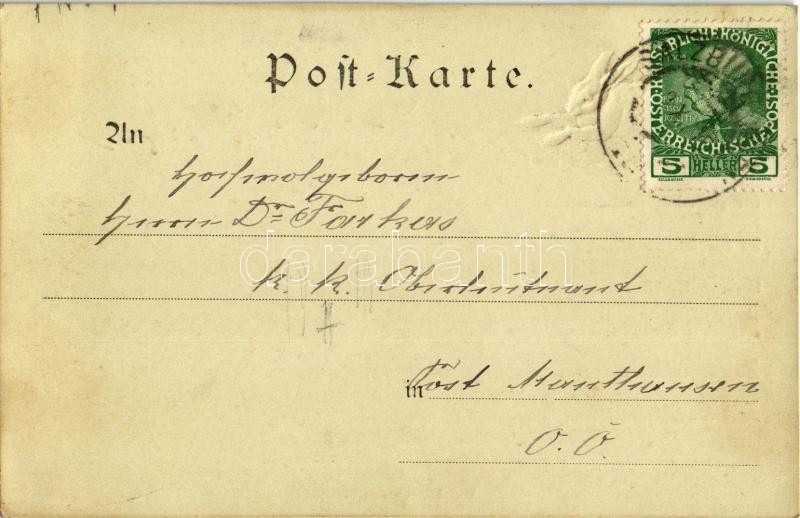 Post-Karte.
An
Hochwolgeboren
Herrn Dr. Farkas
darabanth
K. K. Oberleutnant
in Post Mauthausen
O. Ö.
KAISERLICHE KÖNIGLICHE ÖSTERREICHISCHE POST
5 HELLER 5